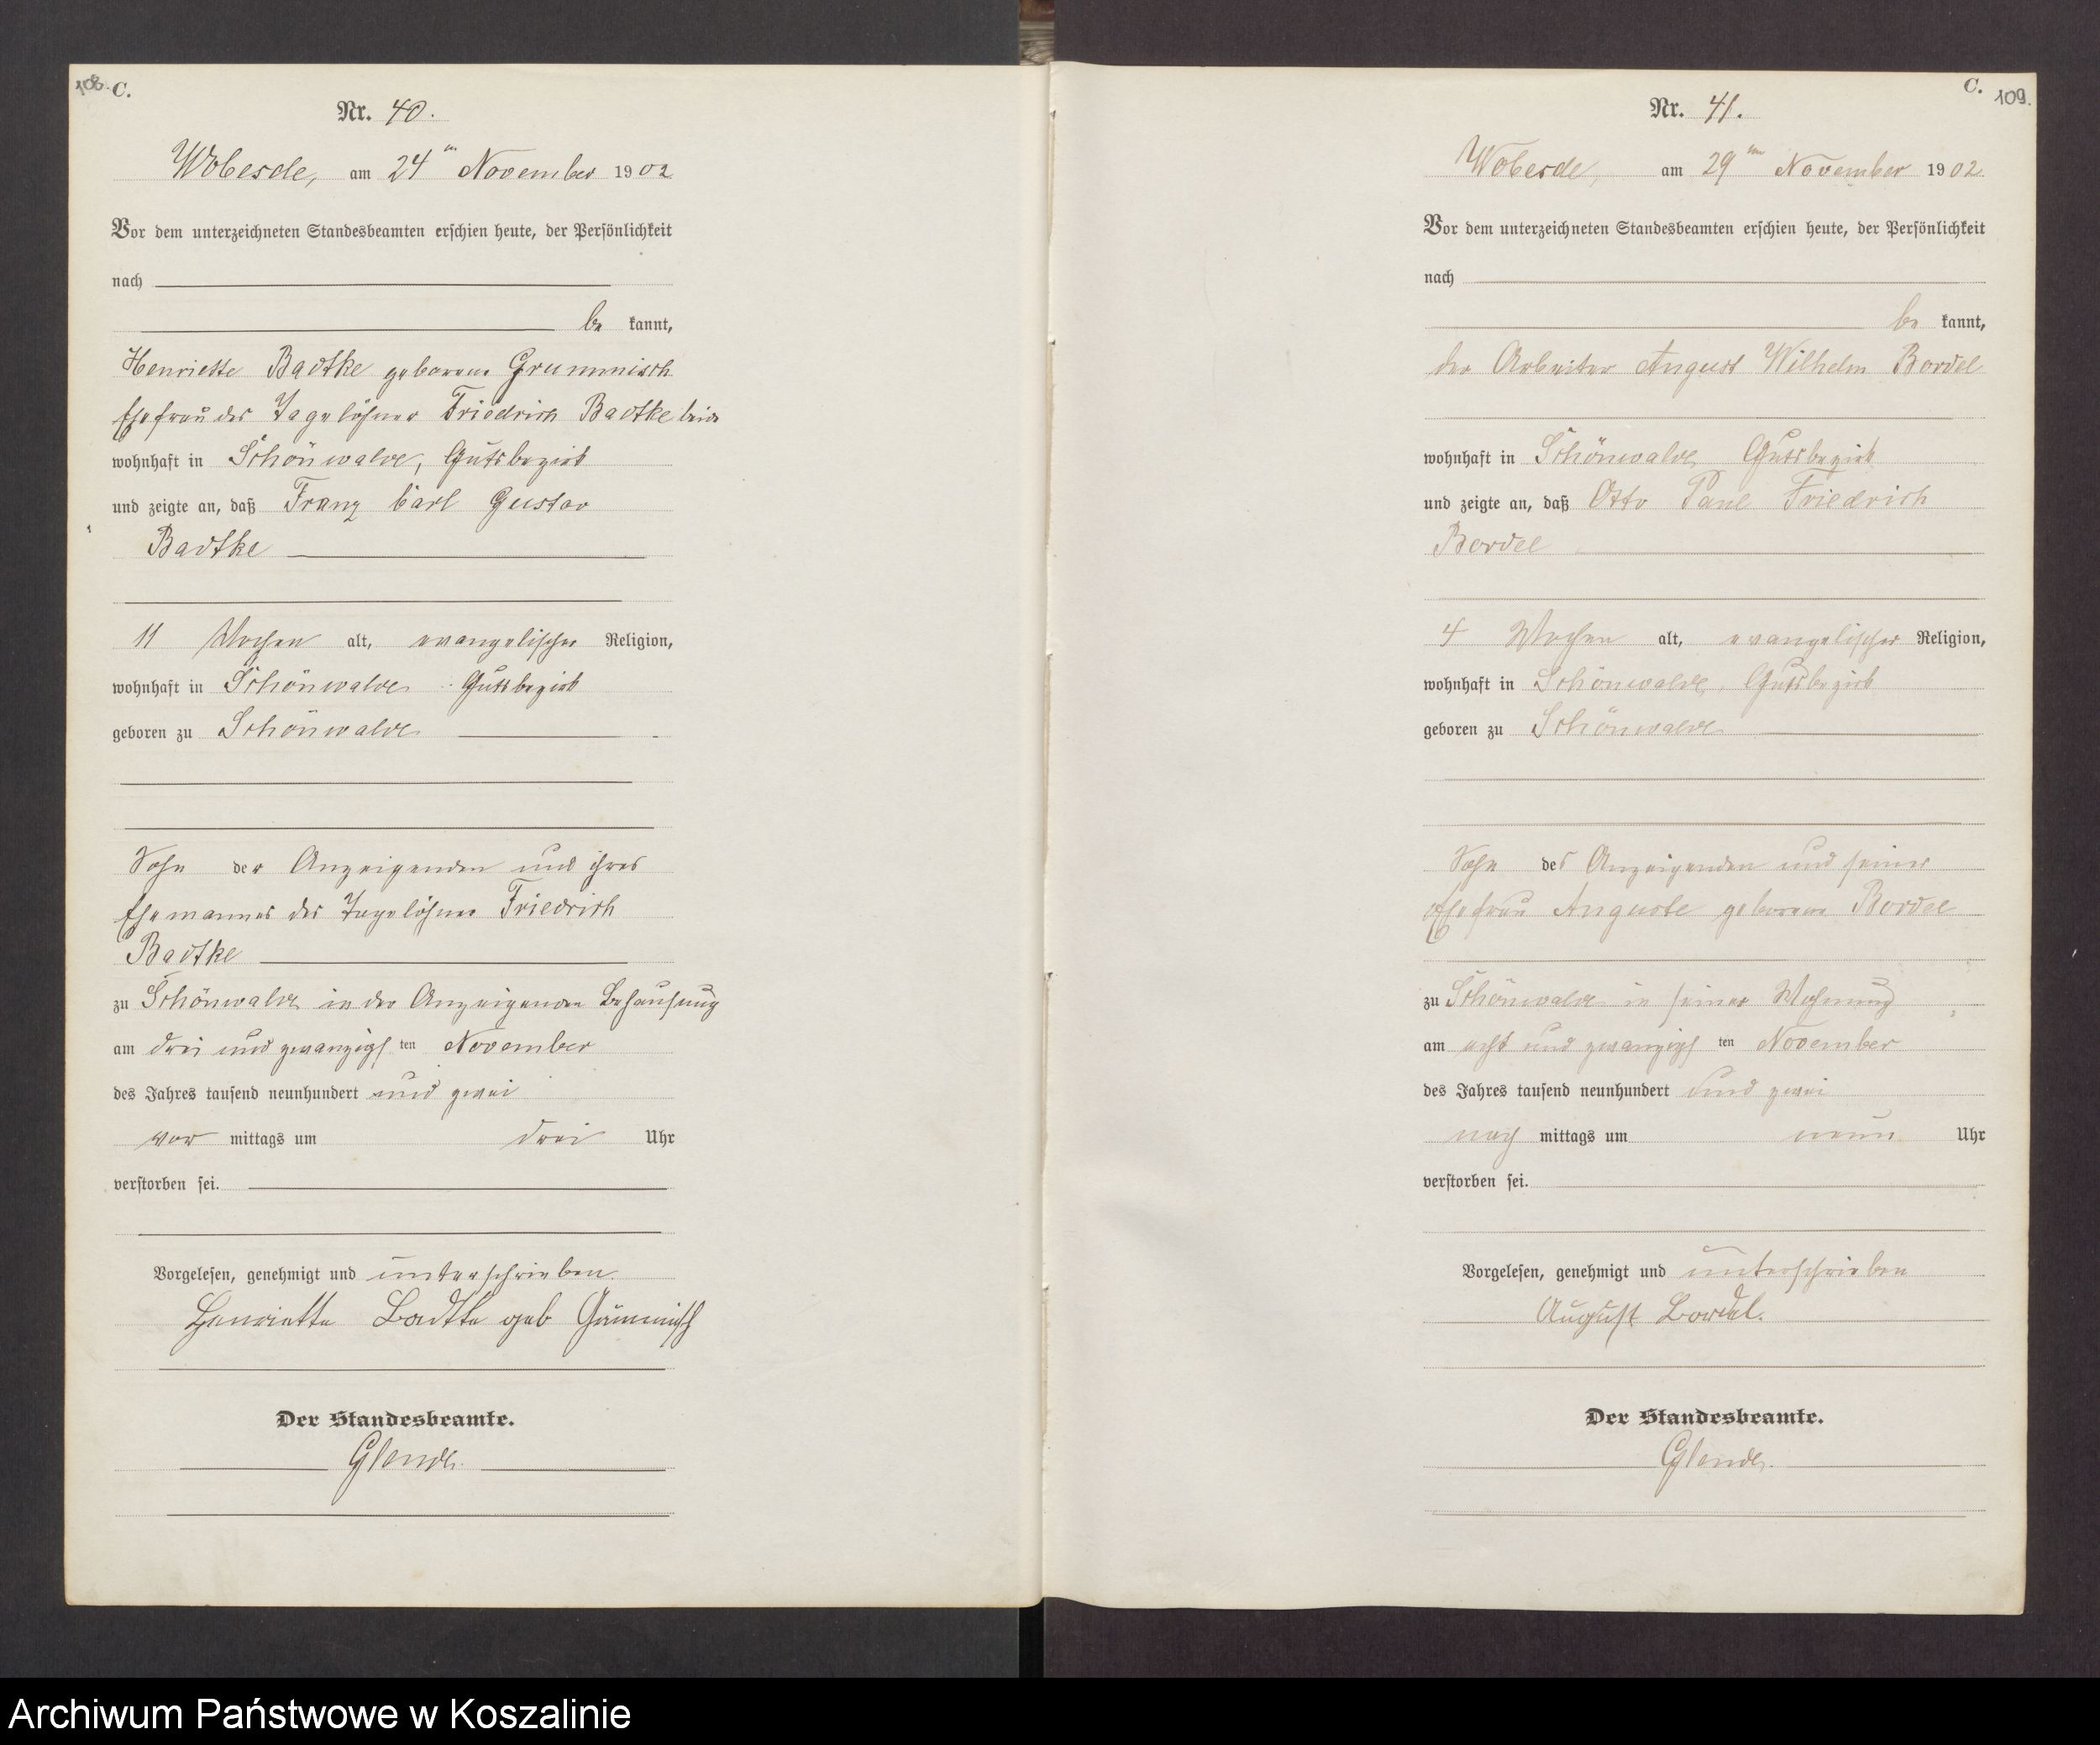 108. C.
Nr. 40.
Wobesde, am 24ten November 1902
Vor dem unterzeichneten Standesbeamten erschien heute, der Persönlichkeit
nach
be kannt,
Henriette Badtke geborene Grummisch
Ehefrau des Tagelöhner Friedrich Badtke beide
wohnhaft in Schönwalde, Gutsbezirk
und zeigte an, daß Franz Carl Gustav
Badtke
11 Wochen alt, evangelischer Religion,
wohnhaft in Schönwalde Gutsbezirk
geboren zu Schönwalde
Sohn der Anzeigenden und ihres
Ehemannes des Tagelöhner Friedrich
Badtke
zu Schönwalde in der Anzeigenden Behausung
am drei und zwanzigs ten November
des Jahres tausend neunhundert und zwei
vor mittags um drei Uhr
verstorben sei.
Vorgelesen, genehmigt und unterschrieben.
Henriette Badtke geb
Der Standesbeamte.
Glende.
C. 109.
Nr. 41.
Wobesde, am 29ten November 1902
Vor dem unterzeichneten Standesbeamten erschien heute, der Persönlichkeit
nach
be kannt,
der Arbeiter August Wilhelm Bordel
wohnhaft in Schönwalde Gutsbezirk
und zeigte an, daß Otto Paul Friedrich
Bordel
4 Wochen alt, evangelischer Religion,
wohnhaft in Schönwalde, Gutsbezirk
geboren zu Schönwalde
Sohn des Anzeigenden und seiner
Ehefrau Auguste geborene Bordel
zu Schönwalde in seiner Wohnung
am acht und zwanzigs ten November
des Jahres tausend neunhundert und zwei
nach mittags um neun Uhr
verstorben sei.
Vorgelesen, genehmigt und unterschrieben
August Bordel.
Der Standesbeamte.
Glende.
Archiwum Państwowe w Koszalinie